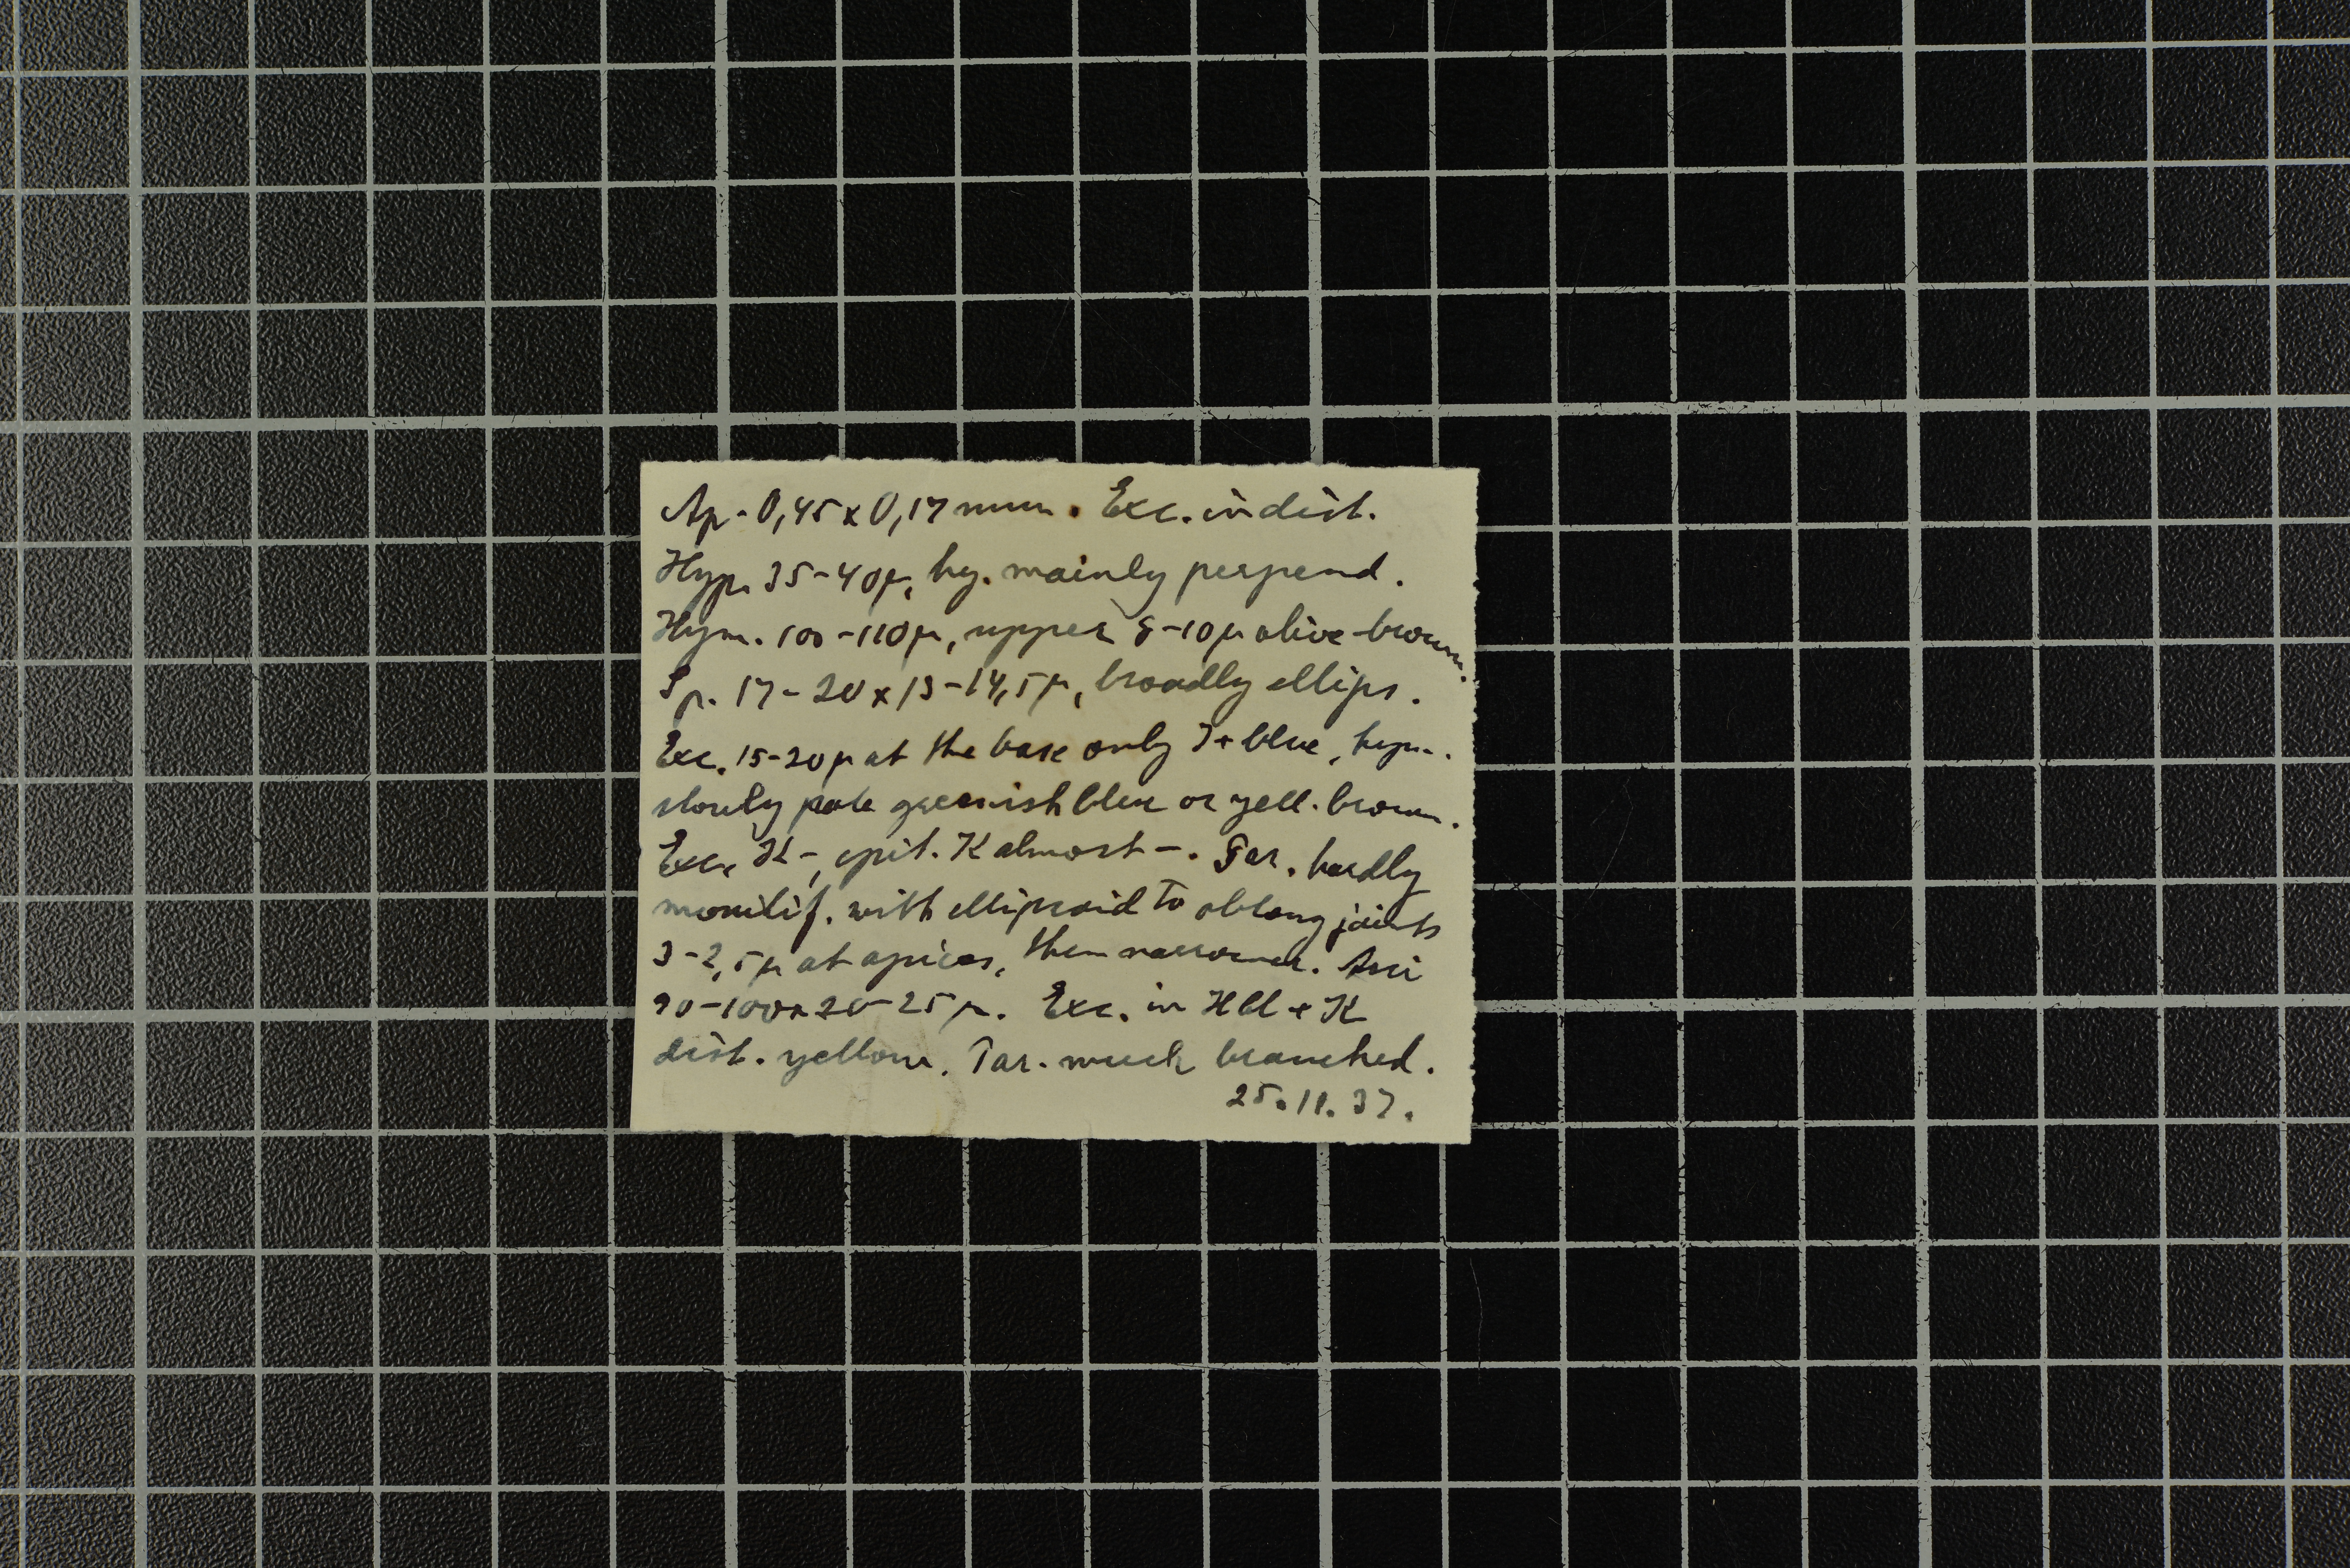 Ap. 0,45 x 0,17 mm. Exc. indist.
Hyp. 35-40µ, hy. mainly perpend.
Hym. 100-110µ, upper 8-10µ olive-brown.
Sp. 17-20 x 13-14,5µ, broadly ellips.
Exc. 15-20µ at the base only J+ blue, hym.
slowly pale greenish blue or yell. brown.
Exc. K-, epit. K almost -. Par. hardly
monilif. with ellipsoid to oblong joints
3-2,5µ at apices, then narrower. Asci
90-100 x 20-25µ. Exc. in HCl + K
dist. yellow. Par. much branched.
25.11.37.